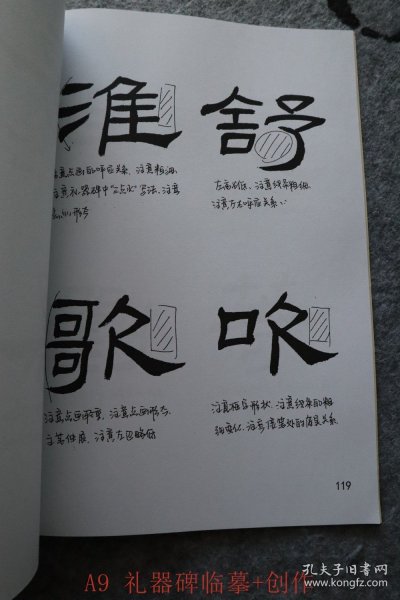 淮 舒
意点画的呼应关系、注意粗细、
注意礼器碑中“三点水”写法、注意
形态
左高右低、注意线条粗细、
注意左右呼应关系
歌 吹
注意点画形变、注意点画形态、
注意左边略低
注意口字形状、注意线条的粗
细变化、注意借笔处的关系
119
A9 礼器碑临摹+创作
孔夫子旧书网
www.kongfz.com